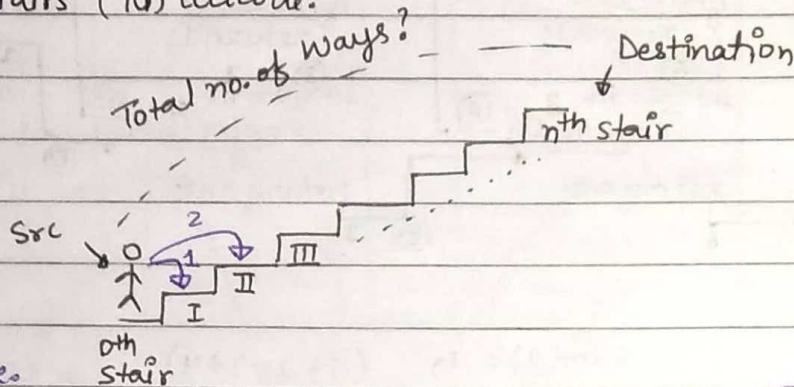 Total no. of ways?
Destination
nth stair
Src
2
1
I
II
III
0th
stair